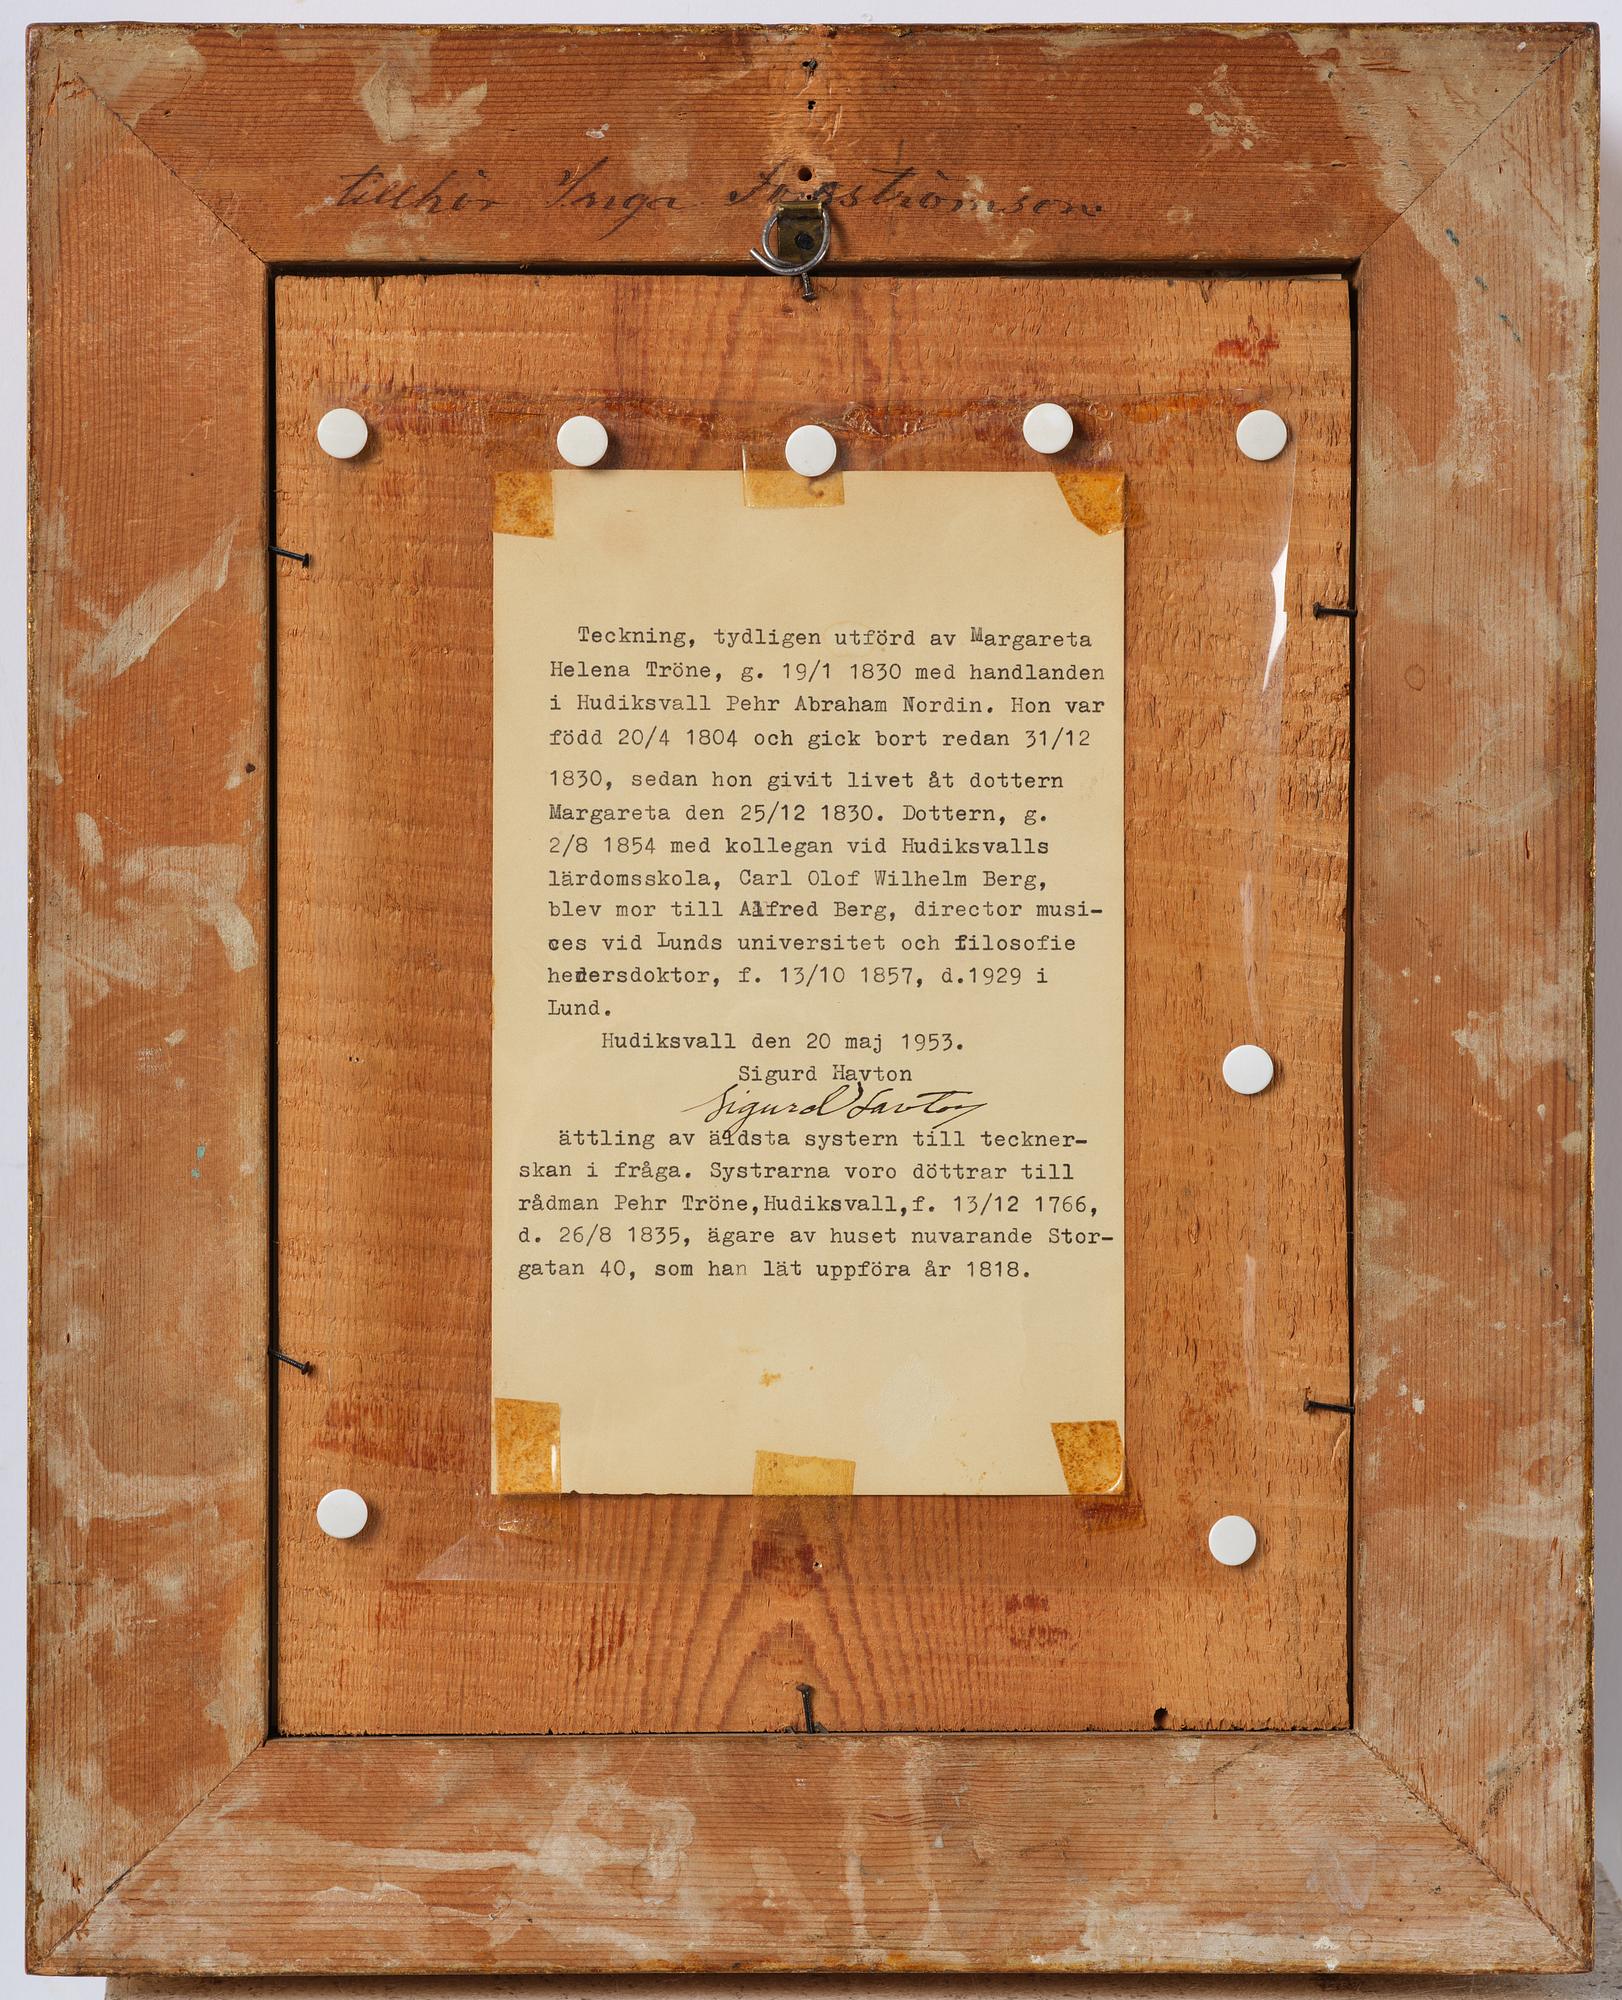 tillhör Inga
Teckning, tydligen utförd av Margareta
Helena Tröne, g. 19/1 1830 med handlanden
i Hudiksvall Pehr Abraham Nordin. Hon var
född 20/4 1804 och gick bort redan 31/12
1830, sedan hon givit livet åt dottern
Margareta den 25/12 1830. Dottern, g.
2/8 1854 med kollegan vid Hudiksvalls
lärdomsskola, Carl Olof Wilhelm Berg,
blev mor till Alfred Berg, director musi-
ces vid Lunds universitet och filosofie
hedersdoktor, f. 13/10 1857, d.1929 i
Lund.
Hudiksvall den 20 maj 1953.
Sigurd Havton
Sigurd Havton
ättling av äldsta systern till teckner-
skan i fråga. Systrarna voro döttrar till
rådman Pehr Tröne,Hudiksvall,f. 13/12 1766,
d. 26/8 1835, ägare av huset nuvarande Stor-
gatan 40, som han lät uppföra år 1818.